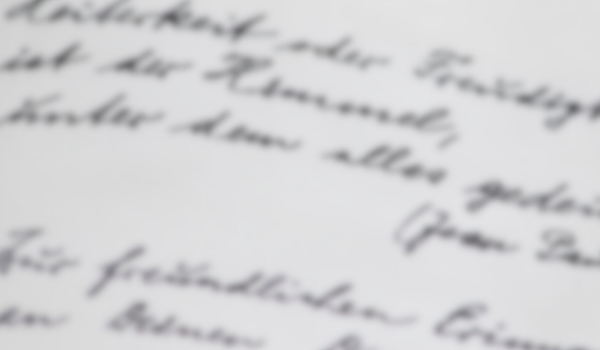 Heiterkeit oder Freudigk
ist der Himmel,
unter dem alles gedei
(Jean Pau
Zur freundlichen Erinne
an Deinen